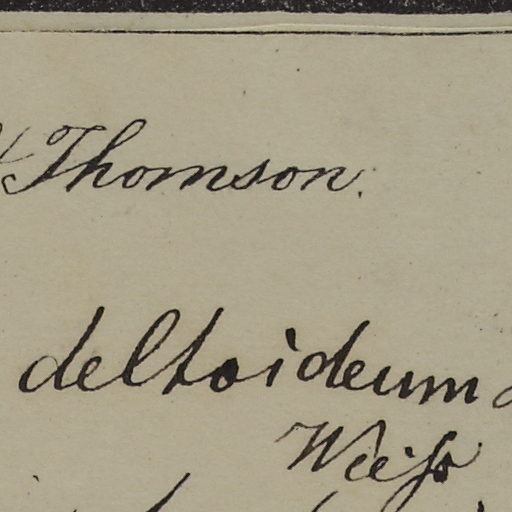 Thomson.
deltoideum
Weiß